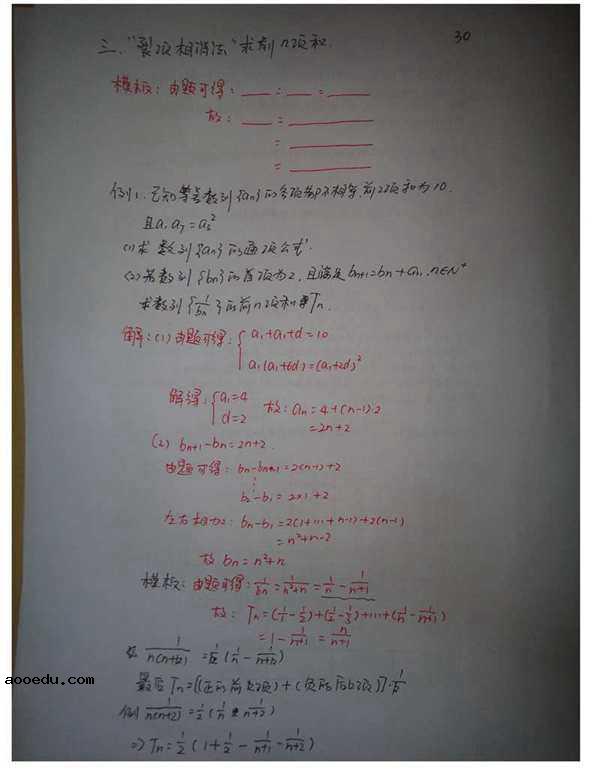 三. "裂项相消法"求前n项和. 30
模板: 由题可得: ___ = ___ = ___
故: ___ = ___
= ___
= ___
例1. 已知等差数列{an}的各项均不相等, 前2项和为10.
且a₁a₇=a₃²
(1)求数列{an}的通项公式.
(2)若数列{bn}的首项为2, 且满足bn+1=bn+an, n∈N⁺
求数列{1/bn}的前n项和Tn.
解: (1) 由题可得: { a₁+a₁+d=10
a₁(a₁+6d)=(a₁+2d)²
解得: { a₁=4 故: an=4+(n-1)·2
d=2 =2n+2
(2) bn+1-bn=2n+2.
由题可得: bn-bn-1=2(n-1)+2
⋮
b₂-b₁=2×1+2
左右相加: bn-b₁=2(1+...+n-1)+2(n-1)
=n²+n-2
故 bn=n²+n
模板: 由题可得: 1/bn=1/(n²+n)=1/n-1/(n+1)
故: Tn=(1/1-1/2)+(1/2-1/3)+...+(1/n-1/(n+1))
=1-1/(n+1)=n/(n+1)
1/(n(n+k))=1/k(1/n-1/(n+k))
最后Tn=[(正的前k项)+(负的后k项)]·1/k
例 1/(n(n+2))=1/2(1/n-1/(n+2))
⇒Tn=1/2(1+1/2-1/(n+1)-1/(n+2))
aooedu.com